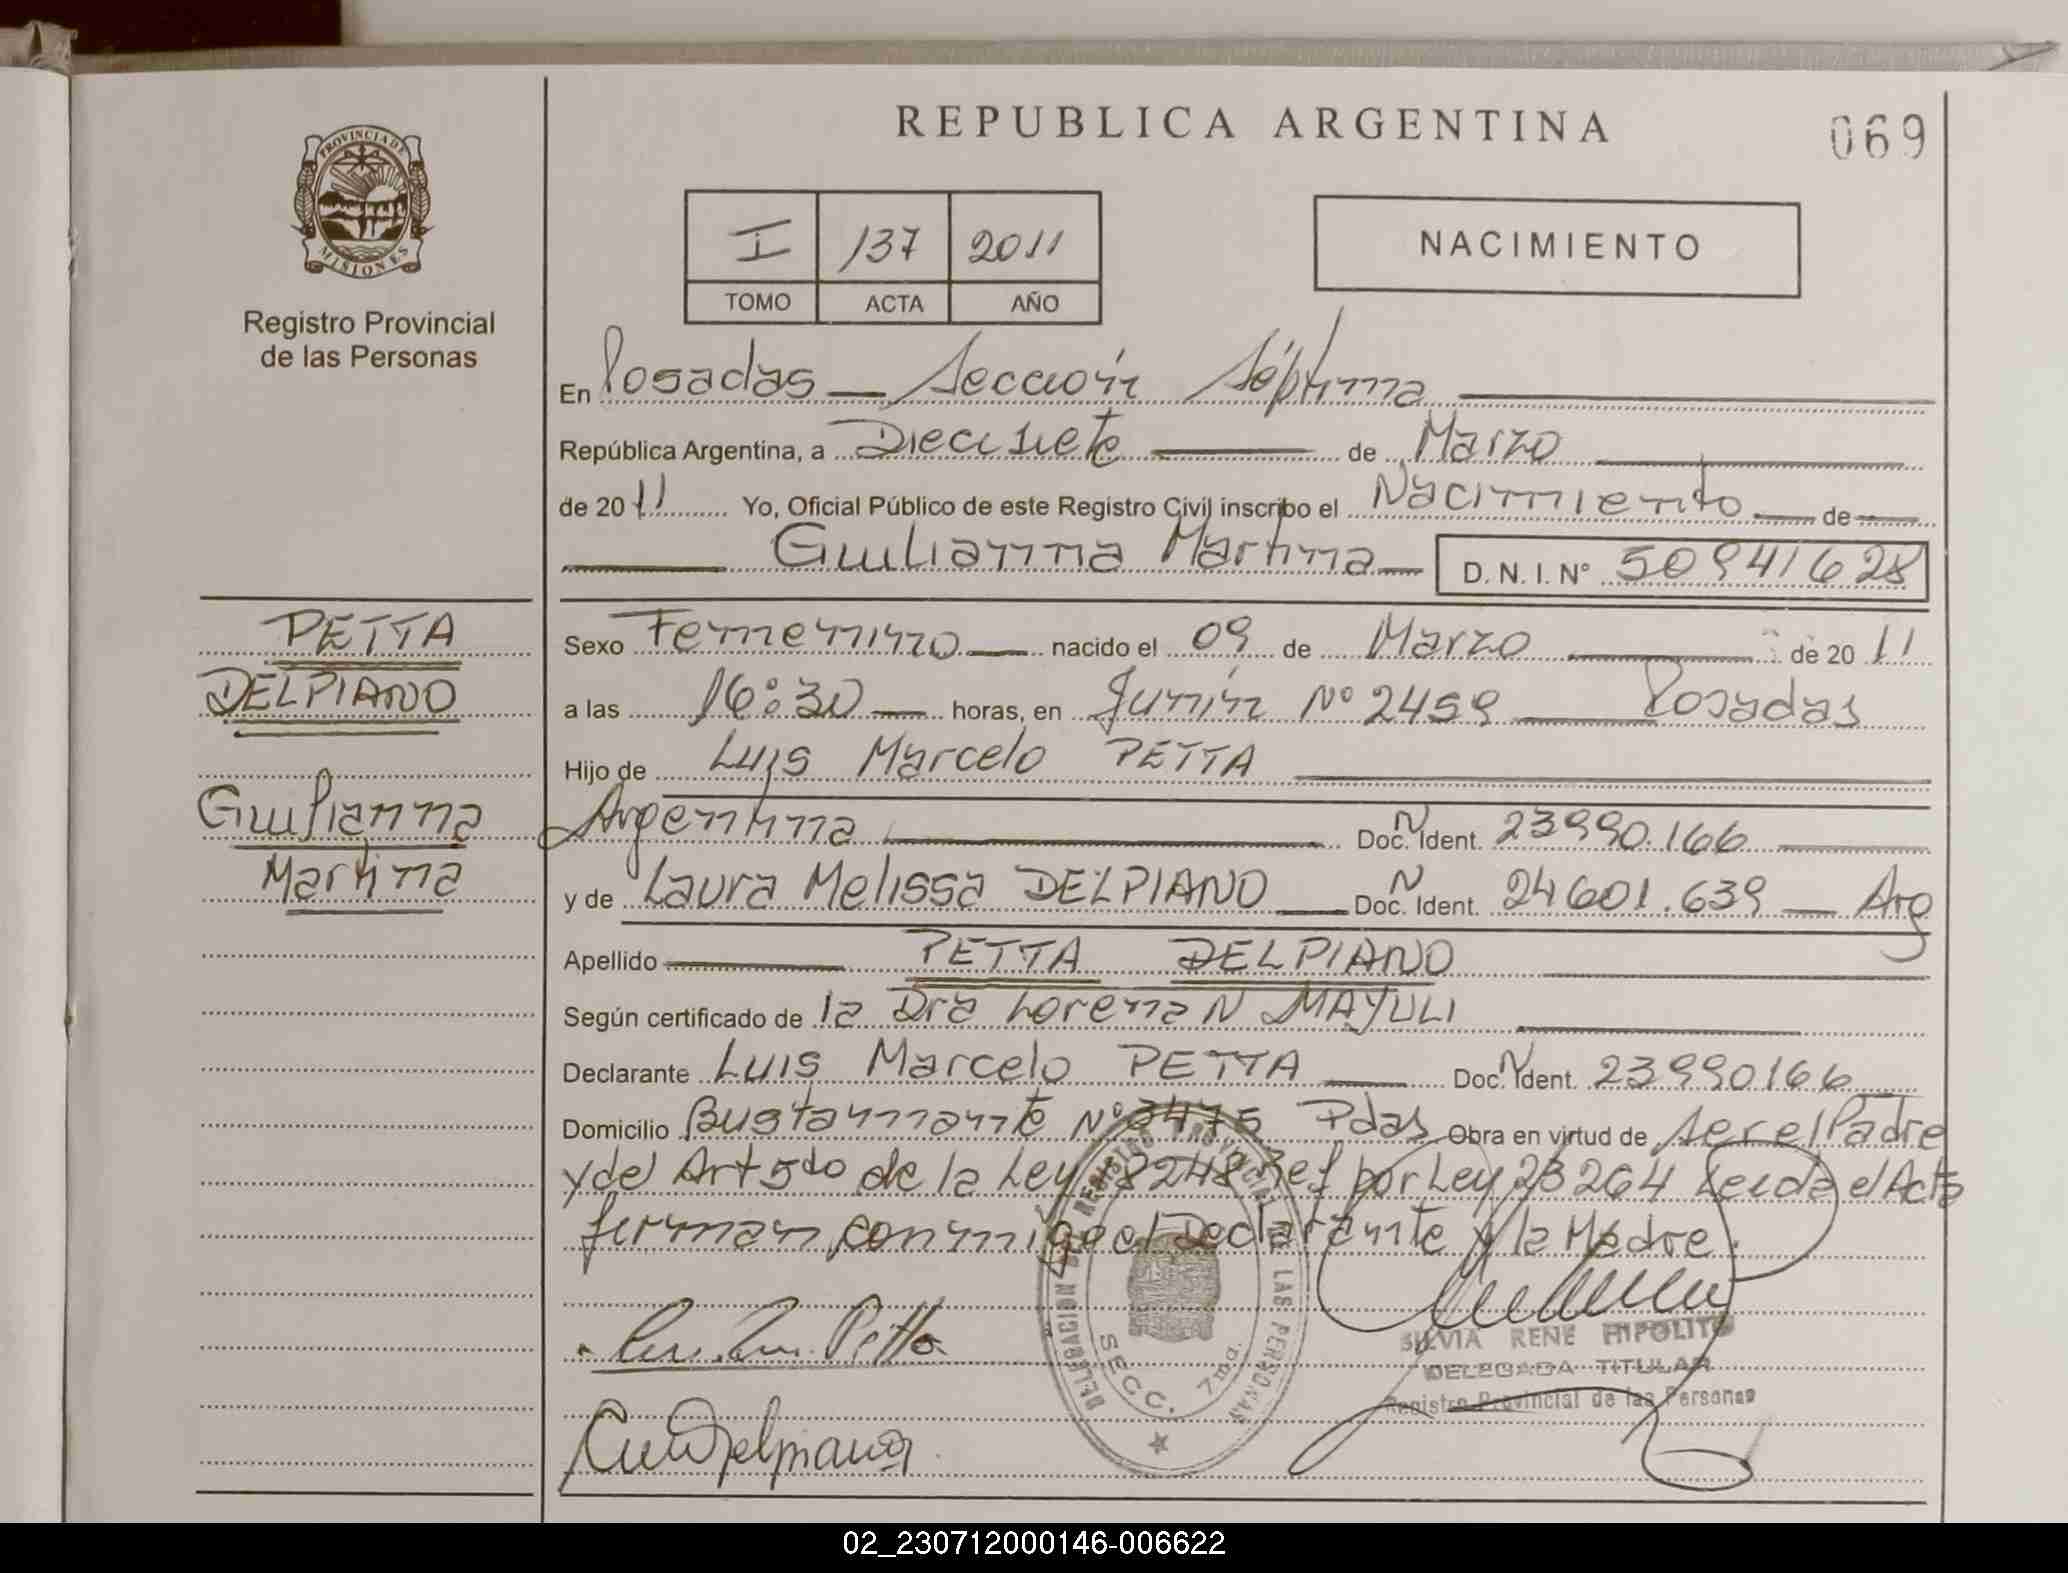 REPUBLICA ARGENTINA
069
PROVINCIA DE
MISIONES
Registro Provincial
de las Personas
I 137 2011
TOMO ACTA AÑO
NACIMIENTO
En Posadas — Sección Séptima
República Argentina, a Diecisiete de Marzo
de 2011 Yo, Oficial Público de este Registro Civil inscribo el Nacimiento de
Giulianna Martina D. N. I. Nº 50941628
PETTA
DELPIANO
Giulianna
Martina
Sexo Femenino nacido el 09 de Marzo de 2011
a las 16:30 horas, en Junín Nº 2459 Posadas
Hijo de Luis Marcelo PETTA
Argentina Doc. N Ident. 23990.166
y de Laura Melissa DELPIANO Doc. N Ident. 24601.639 — Arg
Apellido PETTA DELPIANO
Según certificado de la Dra Lorena N MAYULI
Declarante Luis Marcelo PETTA Doc. N Ident. 23990166
Domicilio Bustamante Nº 3475 Pdas Obra en virtud de ser el Padre
y del Art 5to de la Ley 18248 Ref por Ley 23264 Leida el Acta
firman conmigo el Declarante y la Madre.
DELEGACION REGISTRO PROVINCIAL DE LAS PERSONAS
SECC. 7ma.
SILVIA RENE HIPOLITO
DELEGADA TITULAR
Registro Provincial de las Personas
02_230712000146-006622